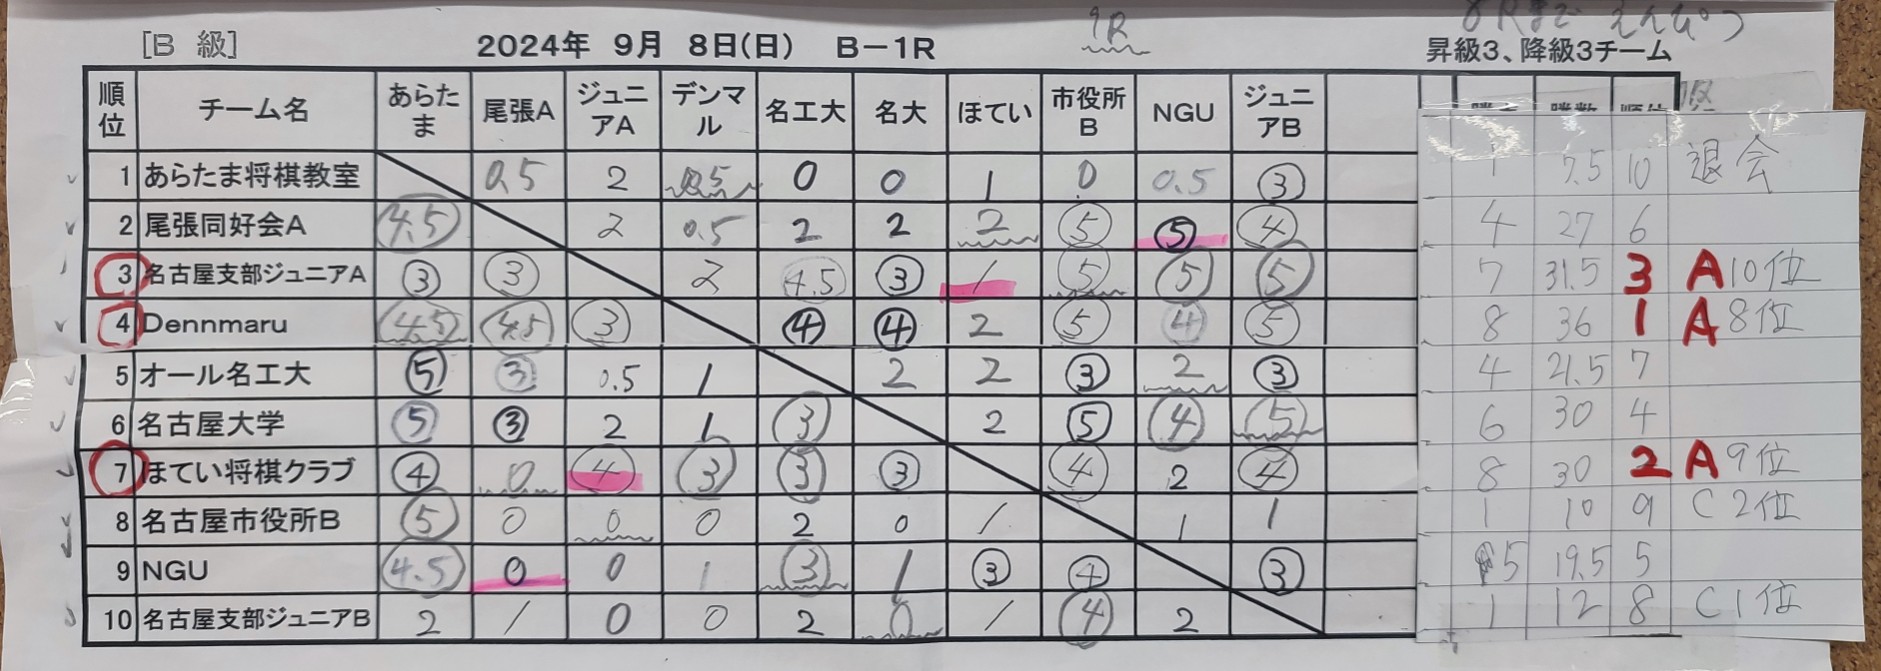 9R
8Rまで えんぴつ
[B 級] 2024年 9月 8日(日) B-1R 昇級3、降級3チーム
順位 チーム名 あらたま 尾張A ジュニアA デンマル 名工大 名大 ほてい 市役所B NGU ジュニアB 勝数 順位
1 あらたま将棋教室 0.5 2 0.5 0 0 1 0 0.5 ③ 1 7.5 10 退会
2 尾張同好会A 4.5 2 0.5 2 2 2 ⑤ ⑤ ④ 4 27 6
3 名古屋支部ジュニアA ③ ③ 2 4.5 ③ 1 ⑤ ⑤ ⑤ 7 31.5 3 A10位
4 Dennmaru 4.5 4.5 ③ ④ ④ 2 ⑤ ④ ⑤ 8 36 1 A8位
5 オール名工大 ⑤ ③ 0.5 1 2 2 ③ 2 ③ 4 21.5 7
6 名古屋大学 ⑤ ③ 2 1 ③ 2 ⑤ ④ ⑤ 6 30 4
7 ほてい将棋クラブ ④ 0 ④ ③ ③ ③ ④ 2 ④ 8 30 2 A9位
8 名古屋市役所B ⑤ 0 0 0 2 0 1 1 1 1 10 9 C2位
9 NGU 4.5 0 0 1 ③ 1 ③ ④ ③ 5 19.5 5
10 名古屋支部ジュニアB 2 1 0 0 2 0 1 ④ 2 1 12 8 C1位